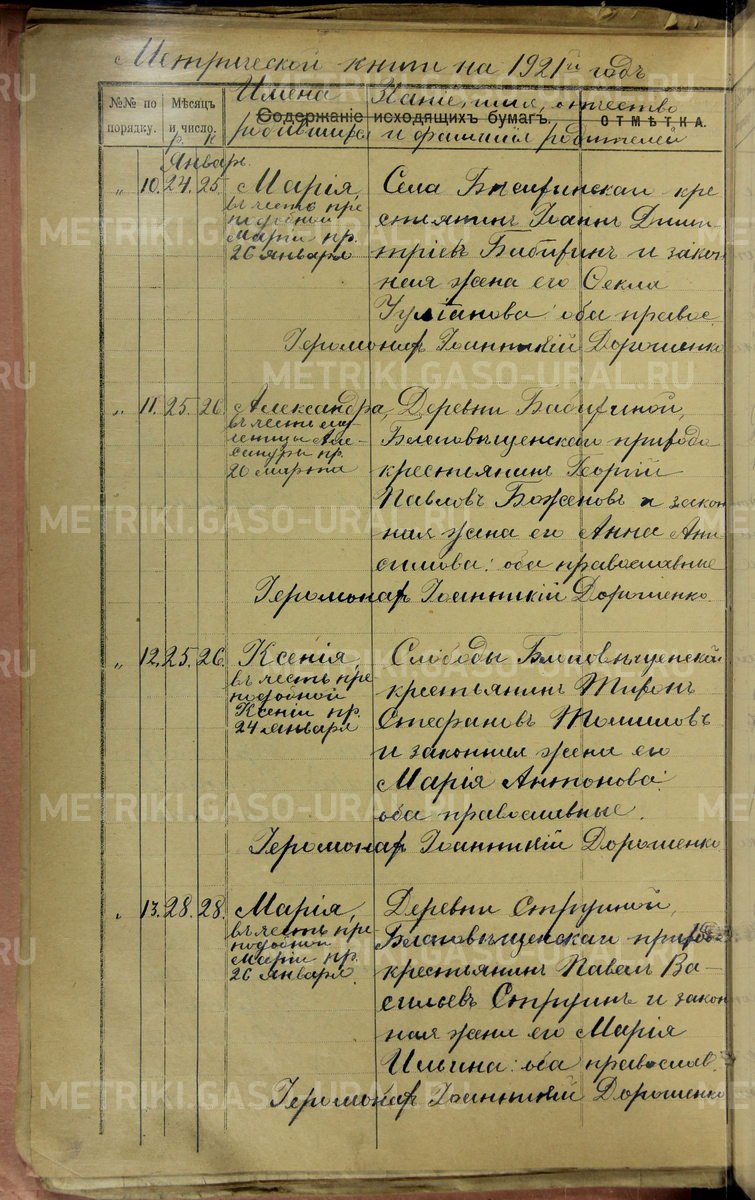 Метрической книги на 1921й годъ
№№ по порядку.
Мѣсяцъ и число.
р. к.
Имена родившихся
Содержаніе исходящихъ бумагъ.
Званіе, имя, отчество
и фамилія родителей
ОТМѢТКА.
Январь.
„ 10. 24. 25. Марія,
въ честь пре
подобной
Маріи пр.
26 января
Села крестьянинъ Іоаннъ Дими-
тріевъ Бабигинъ и закон
ная жена его Ѳекла
оба правос.
Іеромонахъ Іоанникій Дорошенко
„ 11. 25. 26. Александра,
въ честь му-
ченицы Але-
ксандры пр.
20 марта
Деревни
Благовѣщенскаго прихода
крестьянинъ Георгій
Павловъ Боженовъ и закон
ная жена его Анна Ани
симова: оба православные
Іеромонахъ Іоанникій Дорошенко.
„ 12. 25. 26. Ксенія,
въ честь пре
подобной
Ксеніи пр.
24 января
Слободы Благовѣщенской
крестьянинъ Тифонъ
Стефановъ Томиловъ
и законная жена его
Марія Антонова:
оба православные.
Іеромонахъ Іоанникій Дорошенко
„ 13. 28. 28. Марія,
въ честь пре
подобной
Маріи пр.
26 января.
Деревни
Благовѣщенскаго прихода
крестьянинъ Павелъ Ва-
сильевъ и закон
ная жена его Марія
Ильина: оба правосла
Іеромонахъ Іоанникій Дорошенко
METRIKI.GASO-URAL.RU